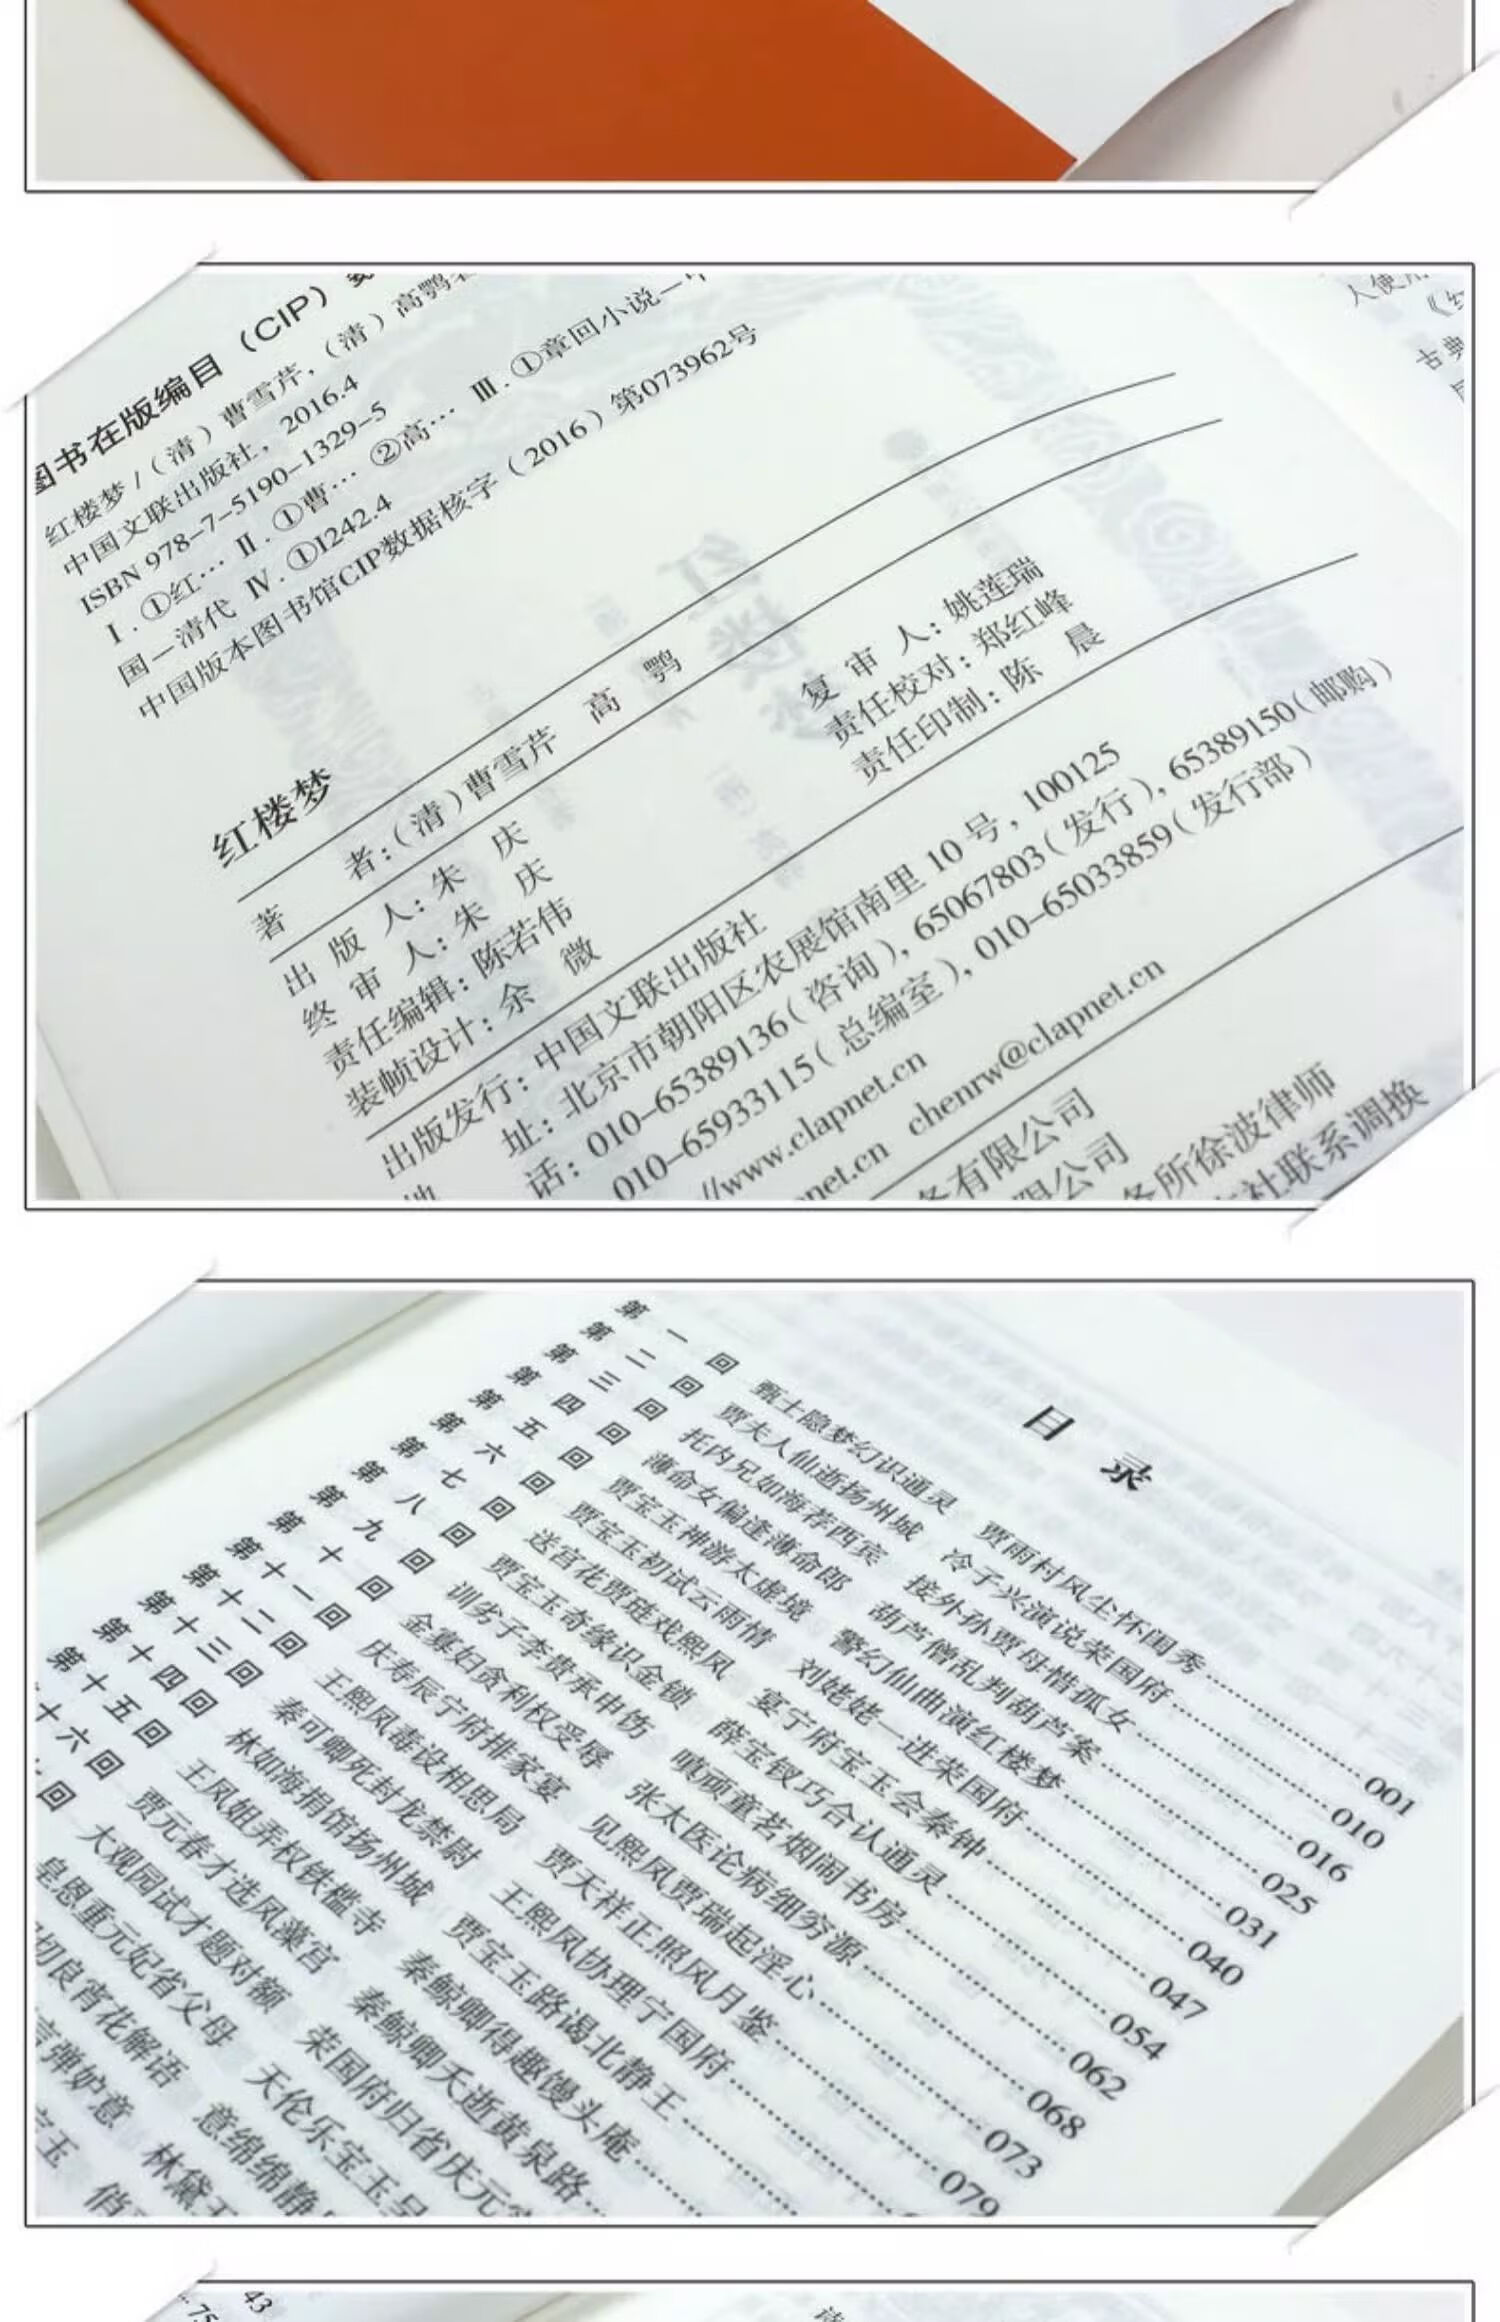 图书在版编目（CIP）
红楼梦 /（清）曹雪芹，（清）高鹗
中国文联出版社，2016.4
ISBN 978-7-5190-1329-5
Ⅰ.①红… Ⅱ.①曹… ②高… Ⅲ.①章回小说－中
国－清代 Ⅳ.①I242.4
中国版本图书馆CIP数据核字（2016）第073962号
人使
《红
古典
红楼梦
著 者：（清）曹雪芹 高 鹗
出 版 人：朱 庆
终 审 人：朱 庆 复 审 人：姚莲瑞
责任编辑：陈若伟 责任校对：郑红峰
装帧设计：余 微 责任印制：陈 晨
出版发行：中国文联出版社
地 址：北京市朝阳区农展馆南里 10 号，100125
话：010-65389136（咨询），65067803（发行），65389150（邮购）
010-65933115（总编室），010-65033859（发行部）
//www.clapnet.cn
pnet.cn chenrw@clapnet.cn
务有限公司
限公司
务所徐波律师
社联系调换
目 录
第 一 回 甄士隐梦幻识通灵 贾雨村风尘怀闺秀……001
第 二 回 贾夫人仙逝扬州城 冷子兴演说荣国府……010
第 三 回 托内兄如海荐西宾 接外孙贾母惜孤女……016
第 四 回 薄命女偏逢薄命郎 葫芦僧乱判葫芦案……025
第 五 回 贾宝玉神游太虚境 警幻仙曲演红楼梦……031
第 六 回 贾宝玉初试云雨情 刘姥姥一进荣国府……040
第 七 回 送宫花贾琏戏熙凤 宴宁府宝玉会秦钟……047
第 八 回 贾宝玉奇缘识金锁 薛宝钗巧合认通灵……054
第 九 回 训劣子李贵承申饬 嗔顽童茗烟闹书房……062
第 十 回 金寡妇贪利权受辱 张太医论病细穷源……068
第十一回 庆寿辰宁府排家宴 见熙凤贾瑞起淫心……073
第十二回 王熙凤毒设相思局 贾天祥正照风月鉴……079
第十三回 秦可卿死封龙禁尉 王熙凤协理宁国府……
第十四回 林如海捐馆扬州城 贾宝玉路谒北静王……
第十五回 王凤姐弄权铁槛寺 秦鲸卿得趣馒头庵……
十六回 贾元春才选凤藻宫 秦鲸卿夭逝黄泉路……
回 大观园试才题对额 荣国府归省庆元宵
皇恩重元妃省父母 天伦乐宝玉呈
切良宵花解语 意绵绵静
言弹妒意 林黛玉
宝玉 俏
43
75